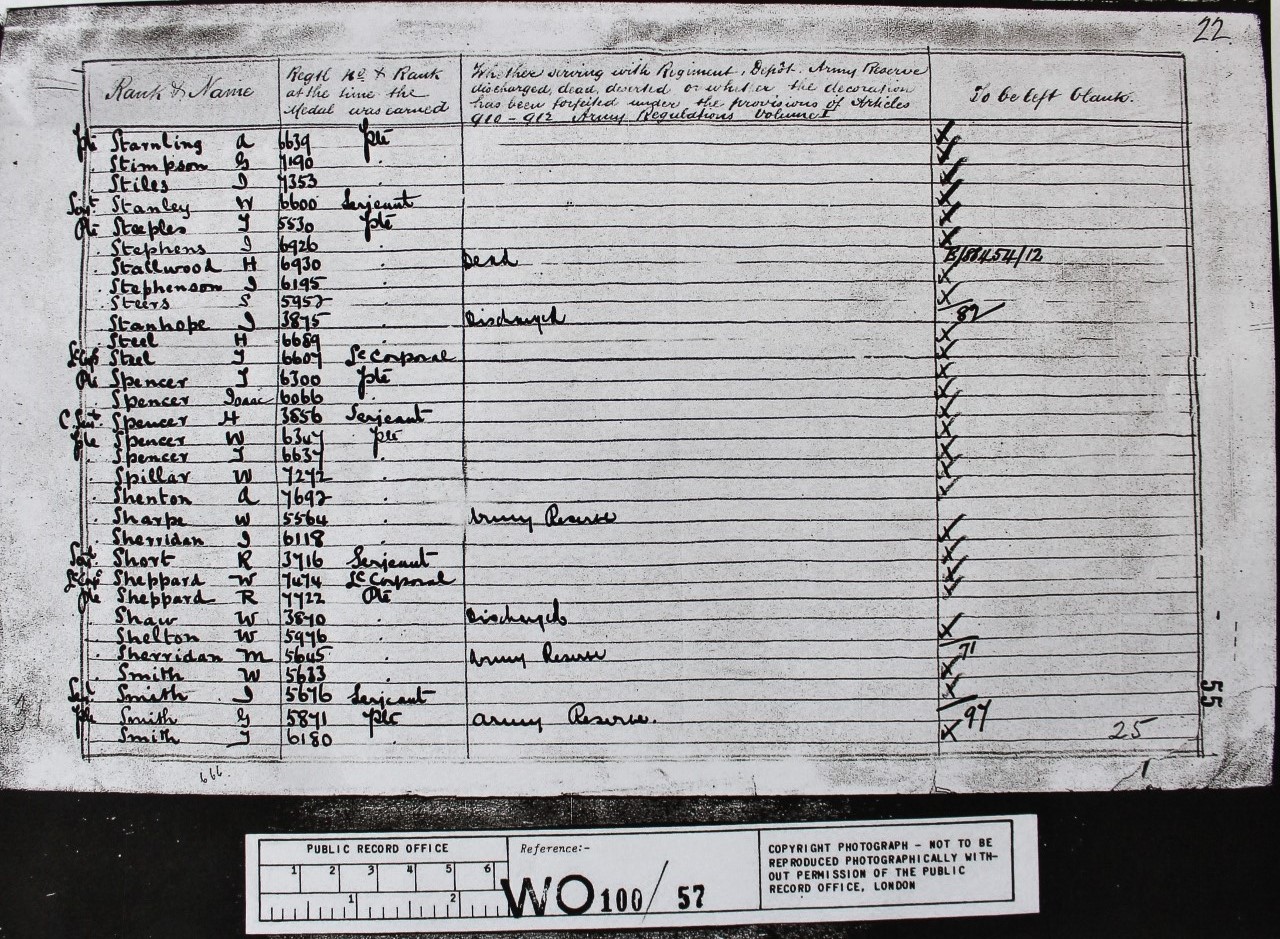 22
Rank & Name
Regtl No & Rank
at the time the
Medal was earned
Whether serving with Regiment, Depôt, Army Reserve
discharged, dead, deserted or whether the decoration
has been forfeited under the provisions of Articles
910-912 Army Regulations Volume I
To be left blank.
Pte Starnling A 6639 Pte
. Stimpson G 7190 .
. Stiles J 7353 .
Serjt Stanley W 6600 Serjeant
Pte Steeples T 5530 Pte
. Stephens J 6926 .
. Stallwood H 6930 . Dead B/88454/12
. Stephenson J 6195 .
. Steers S 5952 .
. Stanhope J 3875 . Discharged 82
. Steel H 6689 .
Lc Corp Steel T 6607 Lc Corporal
Pte Spencer T 6300 Pte
. Spencer Isaac 6066 .
C. Serjt Spencer H 3856 Serjeant
Pte Spencer W 6347 Pte
. Spencer T 6637 .
. Spillar W 7272 .
. Shenton A 7692 .
. Sharpe W 5564 . Army Reserve
. Sherridan J 6118 .
Serjt Short R 3716 Serjeant
Lc Corpl Sheppard W 7474 Lc Corporal
Pte Sheppard R 7722 Pte
. Shaw W 3870 . Discharged
. Shelton W 5976 .
. Sherridan M 5645 . Army Reserve 71
. Smith W 5683 .
Serjt Smith J 5676 Serjeant
Pte Smith G 5871 Pte Army Reserve. 97
. Smith T 6180 .
25
55
666
PUBLIC RECORD OFFICE
1 2 3 4 5 6
1 2
Reference:-
WO 100 / 57
COPYRIGHT PHOTOGRAPH - NOT TO BE
REPRODUCED PHOTOGRAPHICALLY WITH-
OUT PERMISSION OF THE PUBLIC
RECORD OFFICE, LONDON